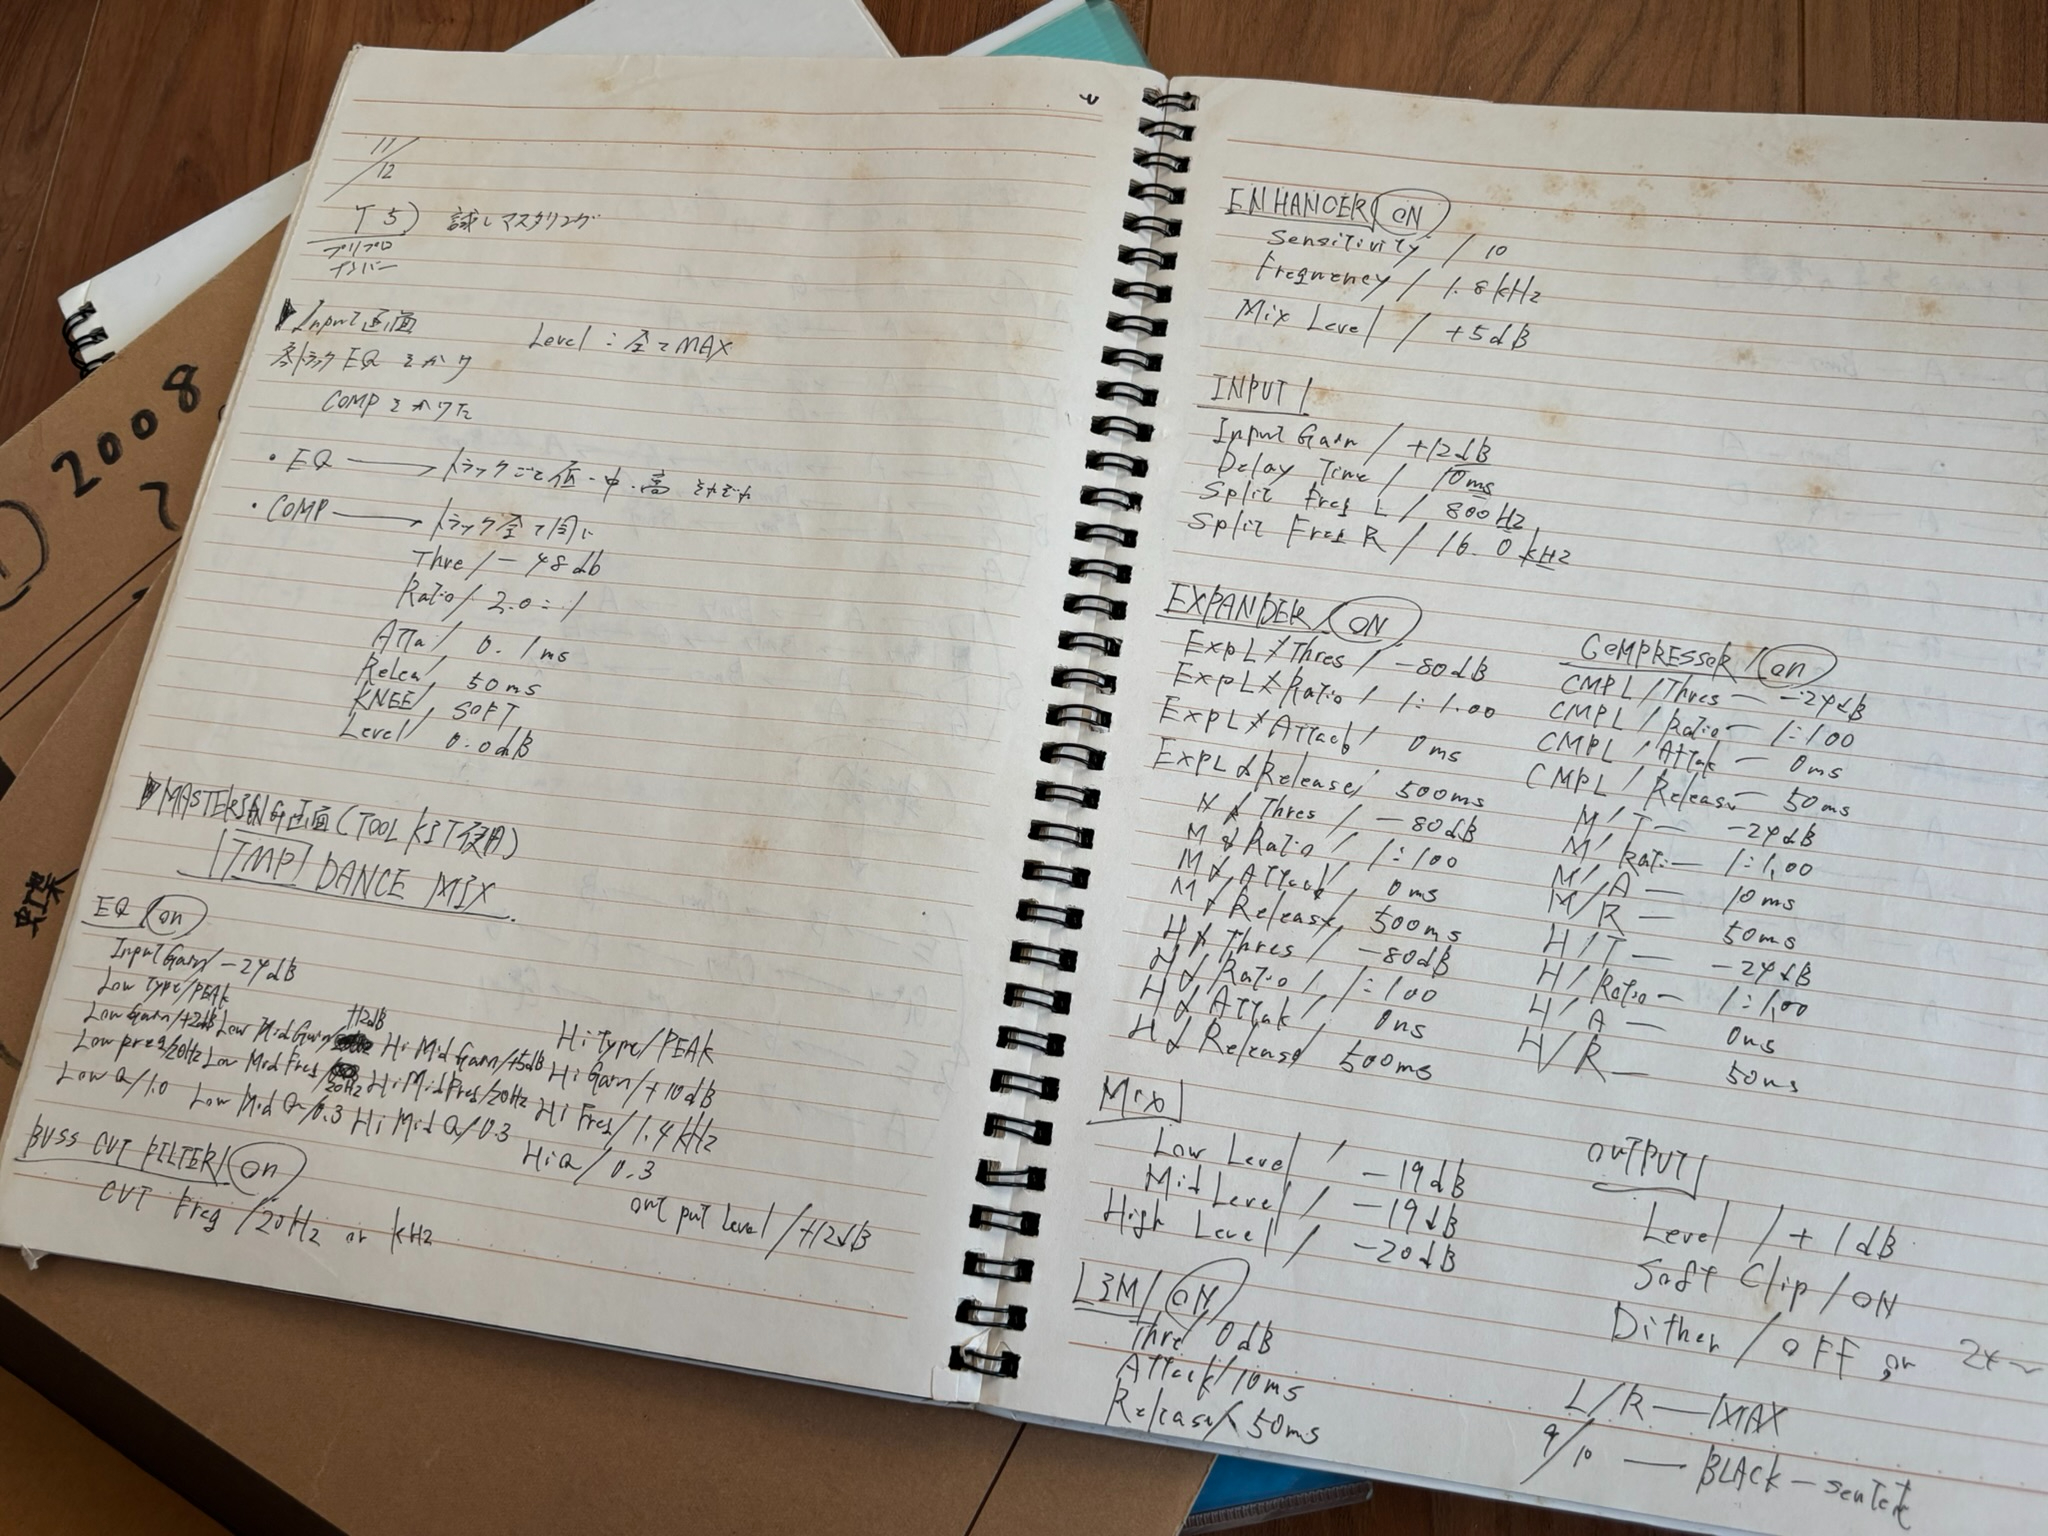 11/12
T5) 試しマスタリング
プリプロ
ナンバー
▶Input画面
Level : 全てMAX
各トラックEQをかけ
COMPをかけた
・EQ → トラックごと低・中・高 それぞれ
・COMP → トラック全て同じ
Thre/ -48db
Ratio/ 2.0:1
Atta/ 0.1ms
Relea/ 50ms
KNEE/ SOFT
Level/ 0.0dB
▶MASTERING画面(TOOL KIT使用)
TMP DANCE MIX
EQ/on
Input Gain/ -24dB
Low Type/PEAK
Low Gain/+2dB Low Mid Gain/ +12dB Hi Mid Gain/+5dB
Low Freq/20Hz Low Mid Freq/ 20Hz Hi Mid Freq/20Hz
Low Q/1.0 Low Mid Q/0.3 Hi Mid Q/0.3
Hi Type/PEAK
Hi Gain/+10dB
Hi Freq/1.4kHz
Hi Q/0.3
BUSS CUT FILTER/on
CUT Freq/20Hz or kHz
out put Level/+12dB
ENHANCER/ON
Sensitivity/ 10
Frequency/ 1.8kHz
Mix Level/ +5dB
INPUT/
Input Gain/ +12dB
Delay Time/ 10ms
Split Freq L/ 800Hz
Split Freq R/ 16.0kHz
EXPANDER/ON
Exp L/Thres/ -80dB
Exp L/Ratio/ 1:1.00
Exp L/Attack/ 0ms
Exp L/Release/ 500ms
M/Thres/ -80dB
M/Ratio/ 1:100
M/Attack/ 0ms
M/Release/ 500ms
H/Thres/ -80dB
H/Ratio/ 1:100
H/Attak/ 0ms
H/Release/ 500ms
COMPRESSOR/on
CMPL/Thres — -24dB
CMPL/Ratio — 1:100
CMPL/Attak — 0ms
CMPL/Release — 50ms
M/T — -24dB
M/Ratio — 1:1,00
M/A — 10ms
M/R — 50ms
H/T — -24dB
H/Ratio — 1:1,00
H/A — 0ms
H/R — 50ms
Mix/
Low Level/ -19dB
Mid Level/ -19dB
High Level/ -20dB
LIM/ON
Thre/ 0dB
Attack/10ms
Release/ 50ms
OUTPUT/
Level/+1dB
Soft Clip/ON
Dither/OFF or 24~
L/R — MAX
9/10 — BLACK-
2008
7